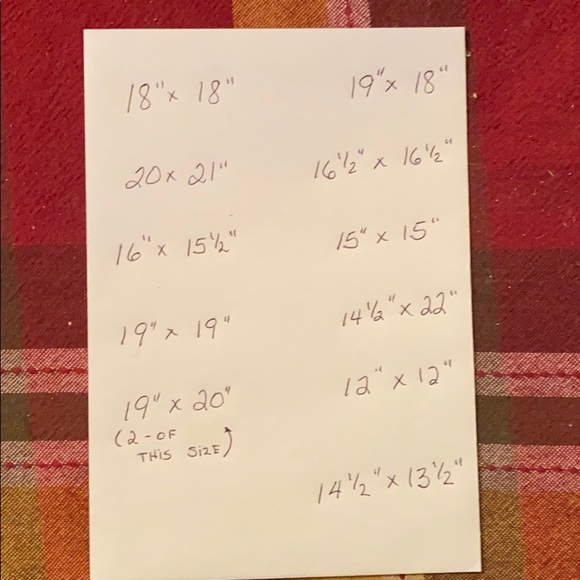 18" x 18"
20 x 21"
16" x 15 1/2"
19" x 19"
19" x 20"
(2-OF
THIS SIZE)
19" x 18"
16 1/2" x 16 1/2"
15" x 15"
14 1/2" x 22"
12" x 12"
14 1/2" x 13 1/2"